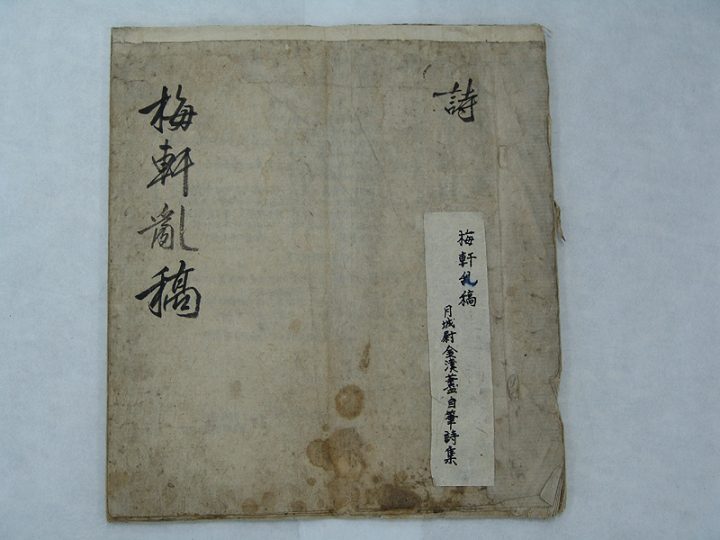 詩
梅軒乱稿
月城尉金漢藎自筆詩集
梅軒亂稿